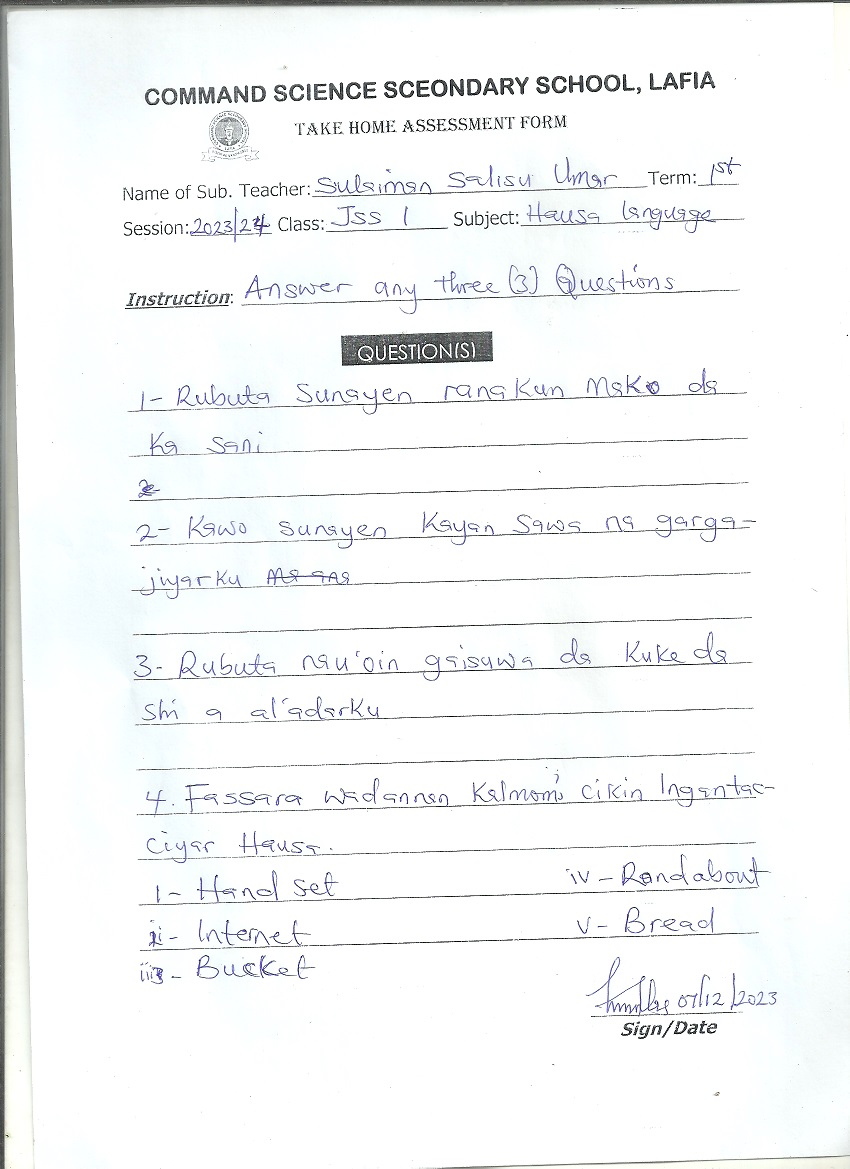 COMMAND SCIENCE SCEONDARY SCHOOL, LAFIA
TAKE HOME ASSESSMENT FORM
Name of Sub. Teacher: Sulaiman Salisu Umar Term: 1st
Session: 2023/24 Class: Jss 1 Subject: Hausa language
Instruction: Answer any three (3) Questions
QUESTION(S)
1- Rubuta Sunayen ranakun Mako da
Ka sani
2- Kawo sunayen Kayan Sawa na garga-
jiyarku
3- Rubuta nau'oin gaisuwa da Kuke da
shi a al'adarku
4. Fassara wadannan Kalmomi cikin Ingantac-
ciyar Hausa.
i- Hand set iv - Rondabout
ii- Internet v- Bread
iii- Bucket
07/12/2023
Sign/Date